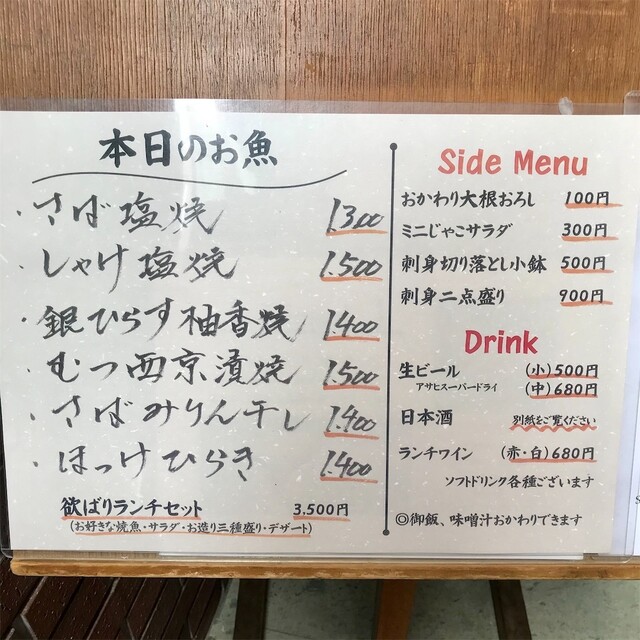 本日のお魚
・さば塩焼 1.300
・しゃけ塩焼 1.500
・銀ひらす柚香焼 1.400
・むつ西京漬焼 1.500
・さばみりん干し 1.400
・ほっけひらき 1.400
欲ばりランチセット 3.500円
(お好きな焼魚・サラダ・お造り三種盛り・デザート)
Side Menu
おかわり大根おろし 100円
ミニじゃこサラダ 300円
刺身切り落とし小鉢 500円
刺身二点盛り 900円
Drink
生ビール (小)500円
アサヒスーパードライ (中)680円
日本酒 別紙をご覧ください
ランチワイン (赤・白)680円
ソフトドリンク各種ございます
◎御飯、味噌汁おかわりできます